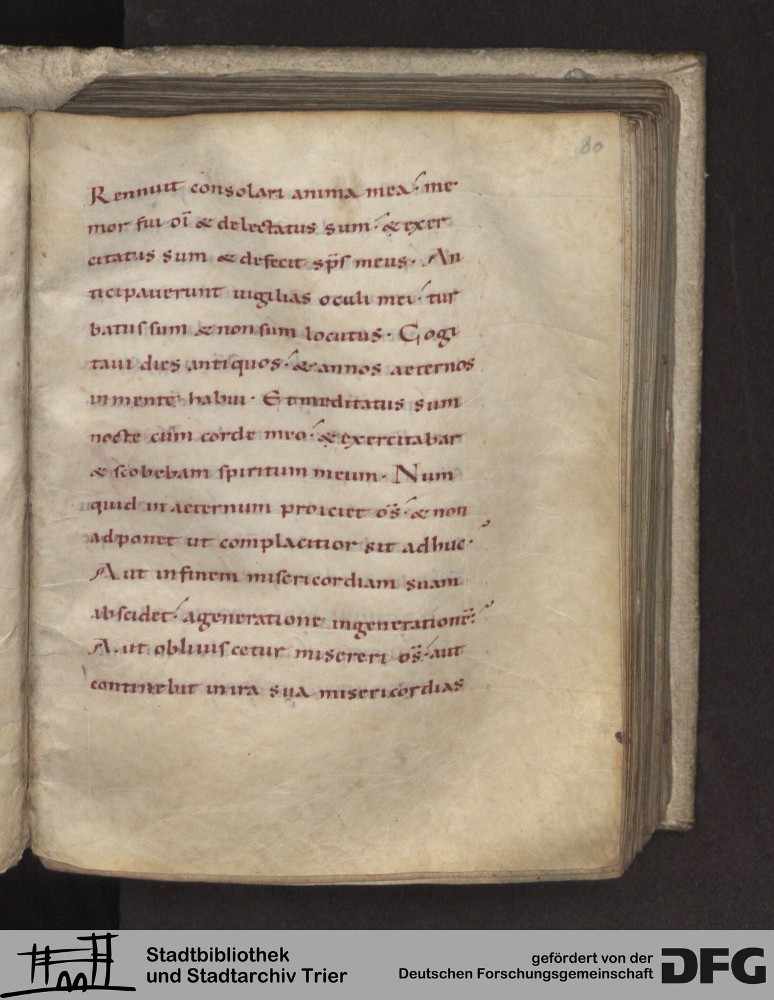 80
Rennuit consolari anima mea. me
mor fui dī & delectatus sum. & exer
citatus sum & defecit sp̄s meus. An
ticipauerunt uigilias oculi mei. tur
batus sum & non sum locutus. Cogi
taui dies antiquos. & annos aeternos
in mente habui. Et meditatus sum
nocte cum corde meo. & exercitabar
& scobebam spiritum meum. Num
quid in aeternum proiciet d̄s. & non
adponet ut complacitior sit adhuc.
Aut in finem misericordiam suam
abscidet. a generatione in generationē.
Aut obliuiscetur misereri d̄s. aut
continebit in ira sua misericordias
Stadtbibliothek
und Stadtarchiv Trier
gefördert von der
Deutschen Forschungsgemeinschaft
DFG